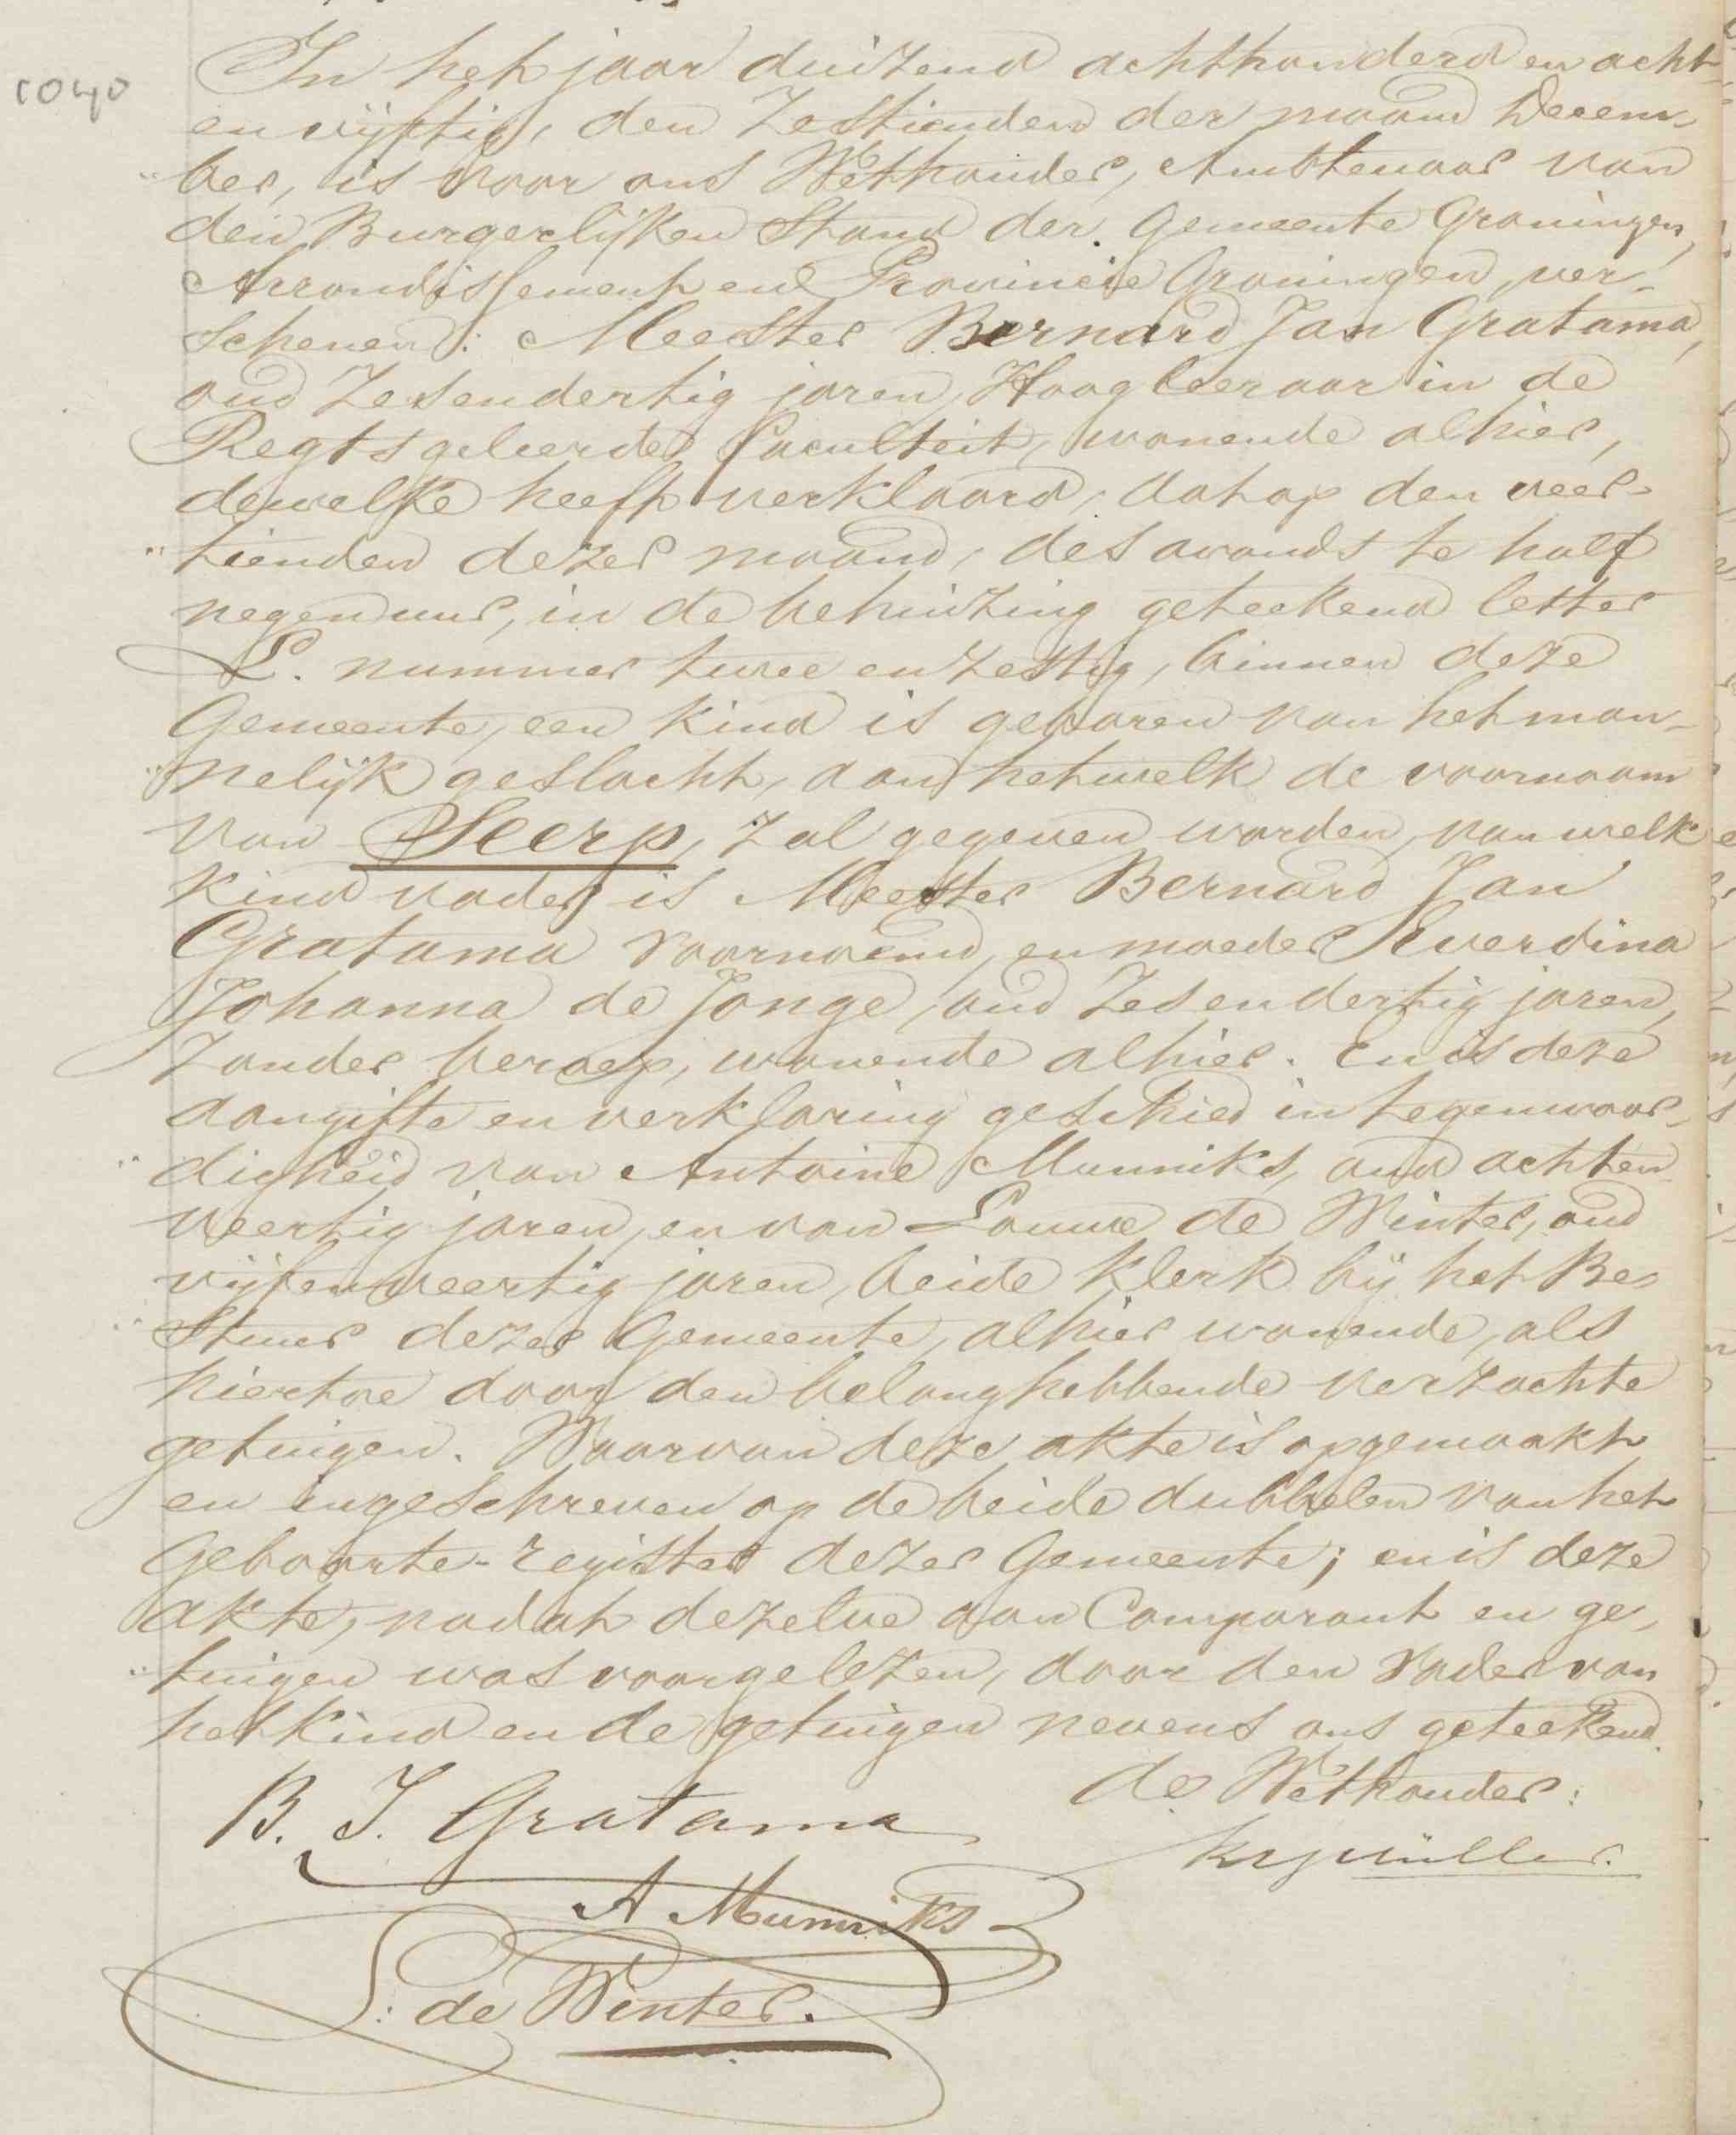 1040
In het jaar duizend achthonderd en acht
en vijftig, den Zestienden der maand Decem-
ber, is voor ons Wethouder, Ambtenaar van
den Burgerlijken Stand der Gemeente Groningen,
Arrondissement en Provincie Groningen, ver-
schenen: Meester Bernard Jan Gratama,
oud Zesendertig jaren, Hoogleeraar in de
Regtsgeleerde faculteit, wonende alhier,
dewelke heeft verklaard, dat op den veer-
"tienden dezer maand, des avonds te half
negen uur, in de behuizing geteekend letter
L. nummer twee en zestig, binnen deze
Gemeente, een kind is geboren van het man-
"nelijk geslacht, aan hetwelk de voornaam
van Seerp, zal gegeven worden, van welk
kind vader is Meester Bernard Jan
Gratama voornoemd, en moeder Everdina
Johanna de Jonge, oud Zesendertig jaren,
Zonder beroep, wonende alhier. En is deze
aangifte en verklaring geschied in tegenwoor-
"digheid van Antoine Munniks, oud achten
veertig jaren, en van Louwe de Winter, oud
vijfenveertig jaren, beide klerk bij het Be-
"stuur dezer Gemeente, alhier wonende, als
hiertoe door den belanghebbende verzochte
getuigen. Waarvan deze akte is opgemaakt
en ingeschreven op de beide dubbelen van het
Geboorte-register dezer Gemeente; en is deze
akte, nadat dezelve aan Comparant en ge-
"tuigen was voorgelezen, door den Vader van
het kind en de getuigen nevens ons geteekend.
de Wethouder:
B. J. Gratama
A Munniks
L: de Winter.